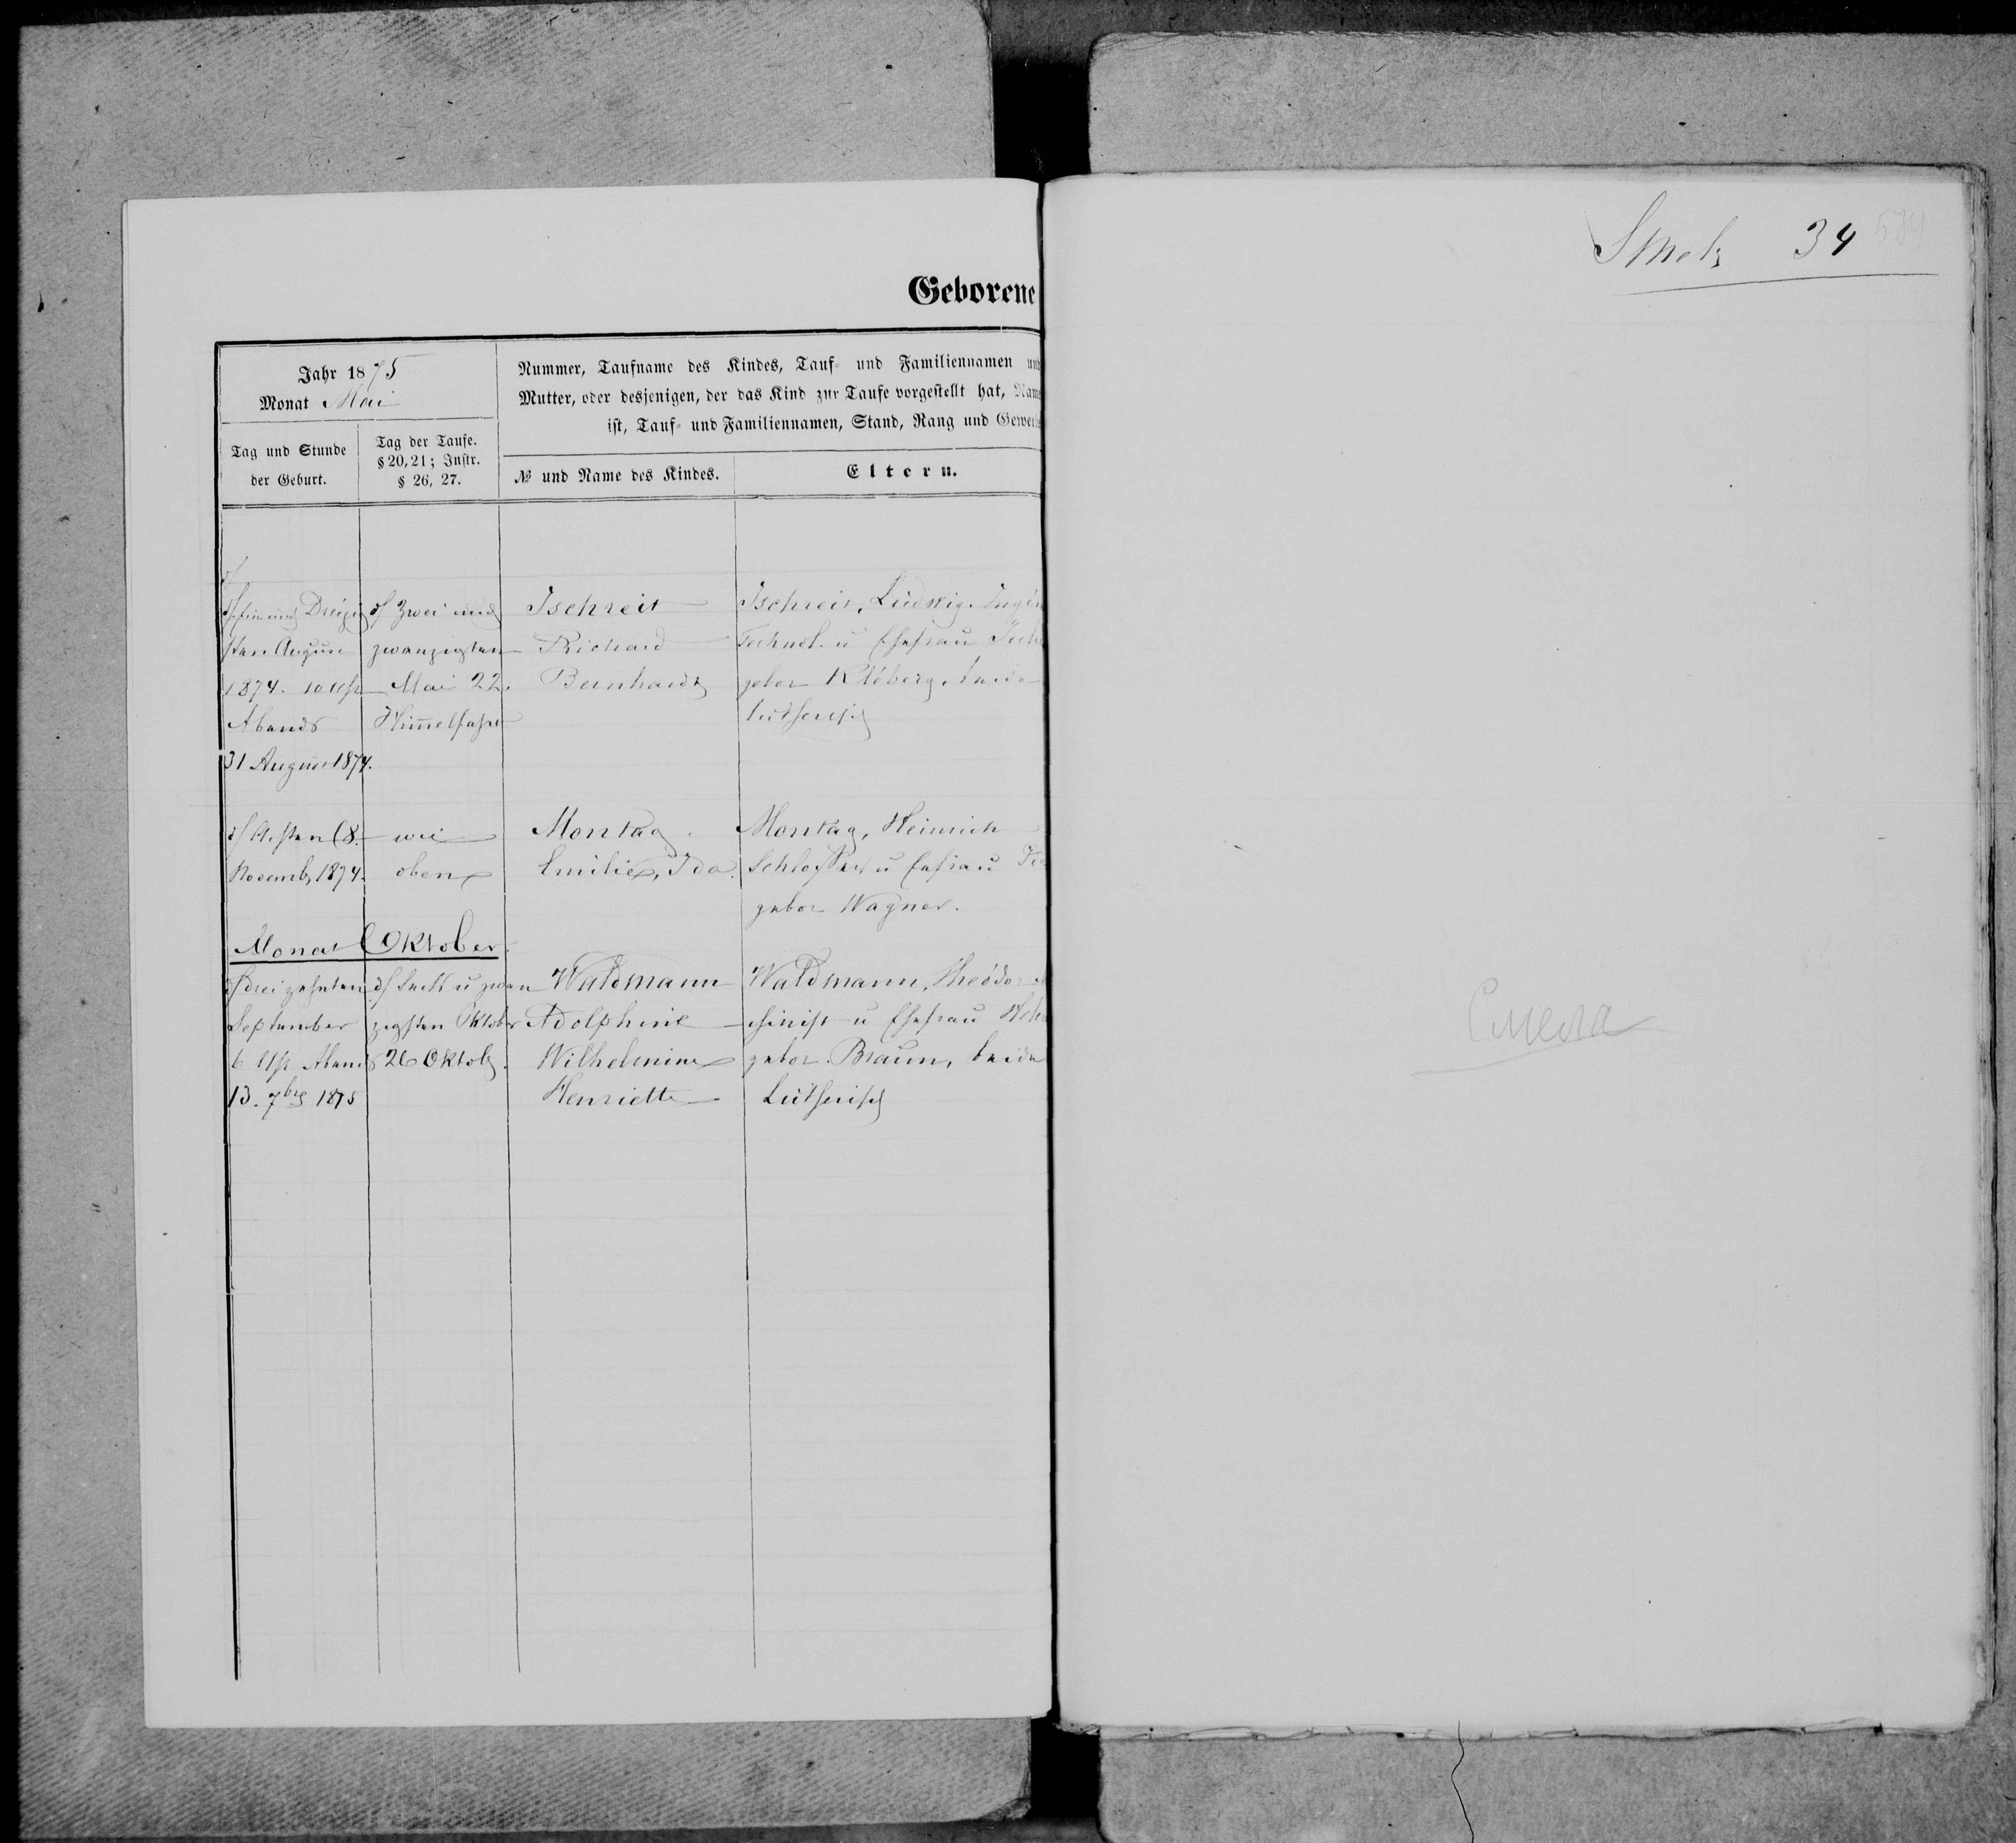 Geborene
Jahr 1875
Monat Mai
Nummer, Taufname des Kindes, Tauf- und Familiennamen und
Mutter, oder desjenigen, der das Kind zur Taufe vorgestellt hat, Name
ist, Tauf- und Familiennamen, Stand, Rang und Gewerb
Tag und Stunde
der Geburt.
Tag der Taufe.
§ 20, 21; Instr.
§ 26, 27.
№ und Name des Kindes.
Eltern.
Ein und Dreißig
sten August
1874. 10 Uhr
Abends
31 August 1874.
Zwei und
zwanzigsten
Mai 22.
Himmelfahrt
Ischreit
Richard
Bernhardt
Ischreit, Ludwig. Ingen
Technol. u Ehefrau
gebor Kleberg, beide
lutherisch
Achten (8.
Novemb 1874.
wie
oben
Montag.
Emilie, Ida.
Montag, Heinrich
Schlosser u Ehefrau
gebor Wagner.
Monat Oktober
Dreizehnten
September
6 Uhr Abends
13. 7bre 1875
Sechs u zwan
zigsten Oktober
26 Oktob.
Waldmann
Adolphine
Wilhelmine
Henriette
Waldmann, Theodor
chinist u Ehefrau
gebor Braun, beide
Lutherisch
34
Смела